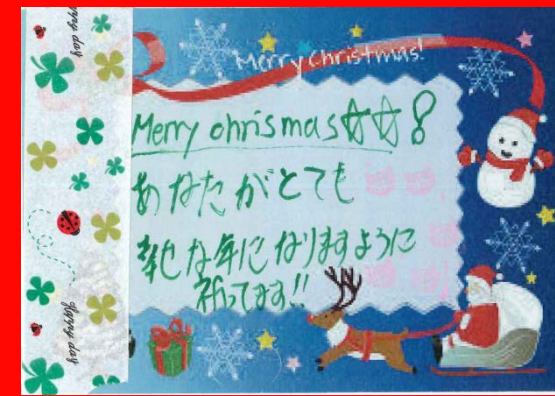 Merry Christmas!
Merry ohrismas☆☆8
あなたがとても
幸せな年になりますように
祈ってます!!
Happy day